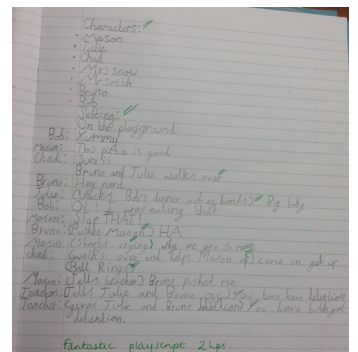 Characters:
• Mason
• Julie
• Chad
• Mrs Snow
• Bruno
• Bob
Setting:
On the playground
Bob: Yummy
Mason: This pizza is good
Chad: Sure is
Bruno and Julie walks over
Bruno: Hey nerd
Julie: Bob's dinner out of hands) Big baby
Bob: O! I was eating that
Mason: STOP THAT!
Bruno: (Pushes Mason) HA
Mason: (Starts crying) why are you so mean
Chad: (walks over and helps Mason up) come on get up
(Bell Rings)
Mason: (Tells teacher) Bruno pushed me.
Teacher: (Tells Julie and Bruno off) You have detention
Teacher: (gives Julie and Bruno detention) You have both got
detention.
Fantastic playscript 2 hps.